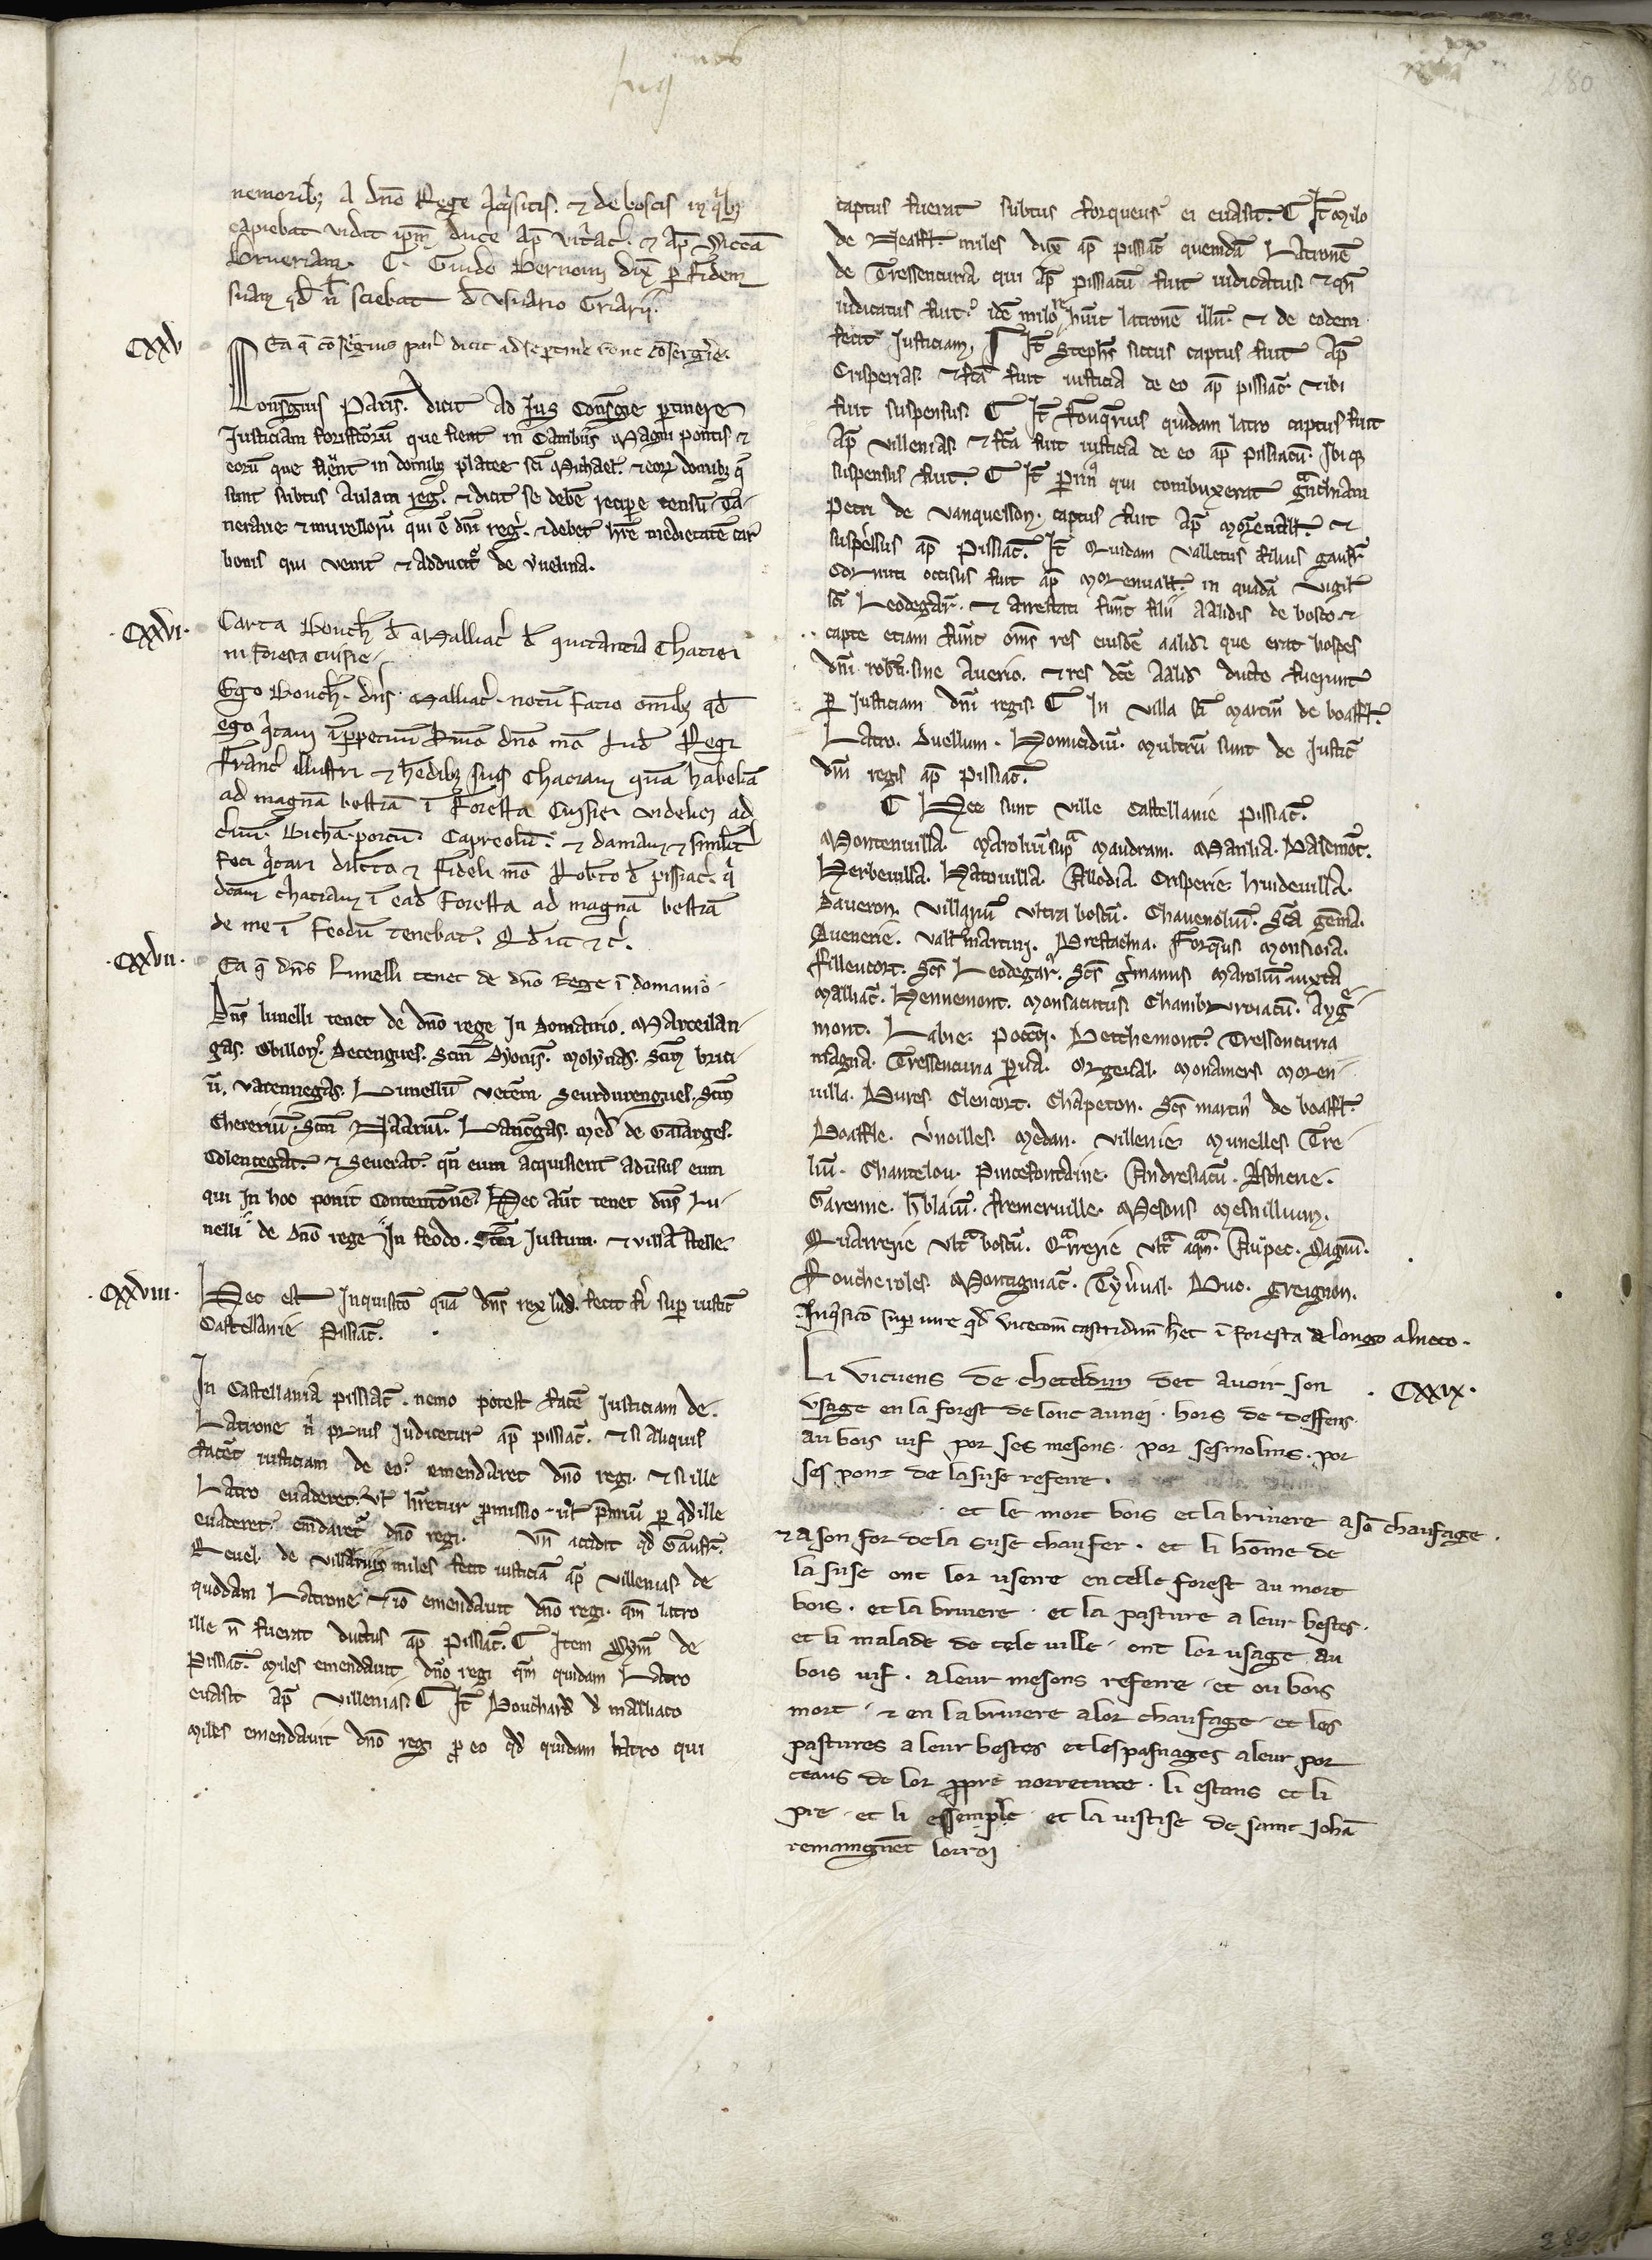 280
nemorib; a dño Rege acq̃sitis. ⁊ de boscis in q̃b;
capiebat vidit ip̃m duce ap̃ vit̃ac̃. ⁊ ap̃ Siccã
Brueriam. C. Guido Bernoni dix̃ p̱ fidem
suam qđ ñ sciebat đ vsuario Griarij.
CXXV
Ea q̃ cõsergius paris̃ dicit ad se p̱tinẽ rõne cõsergẽie.
Consgius Paris̃. dicit ad Jus Consgie p̱tinere
Justiciam forisfctorũ que fient in Cambiis Magni pontis ⁊
eorũ que fiẽnt in domib; platee sc̃i Michael̃. ⁊ eor̃ domib; q̃
sunt subtus Aulam reg̃. ⁊ dicit se debẽ recip̱e censũ Ta-
nerarie ⁊ murellorũ qui ẽ dñi reg̃. ⁊ debet hr̃e medietatẽ car
bonis qui venit ⁊ adducit̃ de vuelina.
·CXXVI·
Carta Bouch̃ đ Malliac̃ đ quitantia Chacrei
in foresta cuisie.
Ego Bouch̃. dñs Malliac̃. notũ facio omib; qđ
ego q̃tam ĩ p̱petuũ kmõ dño mõ Lud̃ Regi
Franc̃ illustri ⁊ h̃edib; suis chaciam quã habebã
ad magnã bestiã ĩ Foresta Cuisiei videlic; ad
c̃uũ. Bichã. porcũ. Capreolũ. ⁊ damam ⁊ simil̃it
feci q̃tari dil̃cto ⁊ fideli mõ Rob̃to đ pissiac̃. q̃
dc̃am chaciam ĩ eađ Foresta ad magnã bestiã
de me ĩ feodũ tenebat. Qđ ut ⁊ c̃.
·CXXVII·
Ea q̃ dñs Lunelli tenet de dño Rege ĩ domanio.
Dñs lunelli tenet de dño rege in Domanio. Marceilan-
gas. Obillon̄. Decengues. Sctm Dyonis̃. Molynas. Sctm brici-
ũ. Varennegas. Lunellũ vetẽm. Seurdurengues. Sctm
Cheveriũ. Sctm Nazariũ. Lanc̃gas. Međ de Galargues.
Colencegat. ⁊ Severat. q̃n eum acquisierit adũsus eum
qui in hoc ponit Contentc̃onẽ. Hec aũt tenet dñs Lu-
nelli de dño rege in feodo. Sctm Justum. ⁊ villã stelle.
·CXXVIII·
Hec est Inquisitĩo quã dñs rex Luđ. fecit fi sup̱ iustic̃
Castellanie Pissiac̃.
In Castellania pissiac̃. nemo potest facẽ Justiciam de
Latrone ñ prius iudicetur ap̃ pissiac̃. ⁊ si aliquis
facẽt iusticiam de eo. emendaret dño regi. ⁊ si ille
Latro evaderet. vt̃ hr̃etur p̱missio. vt̃ p̃miũ p̱ qđ ille
evaderet. emdaret̃ dño regi. vñ accidit qđ Gaufr̃.
Revel. de Villanis miles fecit iusticiã ap̃ Villenias. de
quodam Latrone ⁊ iõ emendavit dño regi. qm̃ latro
ille ñ fuerat ductus ap̃ Pissiac̃. C Item Sym̃ de
Pissiac̃. miles emendavit dño regi qm̃ quidam Latro
evasit ap̃ Villenias. C It̃ Bouchard̃ đ malliaco
miles emendavit dño regi p̱ eo qđ quidam latro qui
captus fuerat subtus forqueus ei evasit. C It̃ milo
de Neaff̃. miles dux̃ ap̃ pissiac̃ quemdã Latronẽ
de Tressencuria qui ap̃ pissiacũ fuit iudicatus. ⁊ q̃n
iudicatus fuit. idẽ milo r̃huit latronẽ illũ. ⁊ de eodem
fecit Justiciam. C It̃ Steph̃s siccus captus fuit ap̃
Crisperias. ⁊ fc̃a fuit iusticia de eo ap̃ pissiac̃. ⁊ ibi
fuit suspensus. C It̃ Fouq̃rius quidam latro captus fuit
ap̃ villenias. ⁊ fc̃a fuit iusticia de eo ap̃ pissiacũ. Ibi q;
suspensus fuit. C It̃ p̱rin̄ qui combuxerat g̃nchiam
Petri de Vanquesson. captus fuit ap̃ Mor̃evall̃. ⁊
suspẽsus ap̃ Pissiac̃. It̃ Quidam valletus filius gaufr̃
Cornuti occisus fuit ap̃ Morenvall̃. in quadã vigil̃
sc̃i Leodegar̃. ⁊ arrestati fũnt filii Aalidis de bosco ⁊
capte etiam fũnt om̃s res eiusdẽ aalid̃. que erat hospes
dñi. rob̃ti. sine Averio. ⁊ res dc̃e Aalid̃ ducte fuerunt
p̱ Justiciam dñi regis. C In villa sc̃i martini de boaff̃.
Latro. Duellum. Homicidiũ. Multrũ sunt de Justic̃
dñi regis ap̃ Pissiac̃.
C Hee sunt ville Castellanie Pissiac̃.
Montenvilla. Maroliũ sup̃ maudram. Marilia. Basemõt.
Herbevilla. Hatonvilla. Allodia. Crisperie. hvidevilla.
Daveron. Villariũ vltra boscũ. Chavenoliũ. Sc̃a gẽma.
Avenerie. Vall̃ martini. Brestaelna. Forq̃us. Monsioia.
Fillencort. Sc̃s Leodegar̃. Sc̃s g̃manus. Maroliũ iuxta
Malliac̃. Hennemont. Monsacutus. Chamburciacũ. Ayg̃e-
mont. Labie. Poccõi. Betthemont. Tressoncuria
magna. Tressencuria p̱ua. Orgeval. Monamers. Moren-
villa. Bures. Clencort. Chapeton. Sc̃s martin̄ de boaff̃.
Boaffle. v̄noilles. Medan. Villenie. Munelles. Tre-
liũ. Chantelou. Pincefontaine. Andresiacũ. Ascherie.
Garenne. h̃blaiũ. Fremerville. Mesons. Mesnillium.
Quarrerie vlt̃ boscũ. Q̃rrerie vlt̃ aq̃m. Aupec. Magnũ.
Foucheroles. Montigniac̃. Tyv̄val. Buc. Greignon.
Inq̃sitõ sup̱ iure qđ vicecom̃ castriduñ h̃et ĩ foresta de longo alneto.
·CXXIX·
Li vicuens de cheteldun det avoir son
vsage en la forest de lonc aunei. hors de deffens.
au bois vif por ses mesons. por ses molins. por
ses ponz de la suse refere.
et le mort bois et la bruiere a sõ chaufage.
⁊ a son for de la suse chaufer. et li hõme de
la suse ont lor usere en celle forest au mort
bois. et la bruiere. et la pasture a leur bestes.
et li malade de cele ville. ont lor usage au
bois vif. a leur mesons refere. et ou bois
mort. ⁊ en la bruiere a lor chaufage. et les
pastures a leur bestes et les pasnages a leur por
ceaus de lor p̱pre norreture. li estans et li
pre. et li essemple. et la vistise de saint Johã
remaingnẽt lor roi